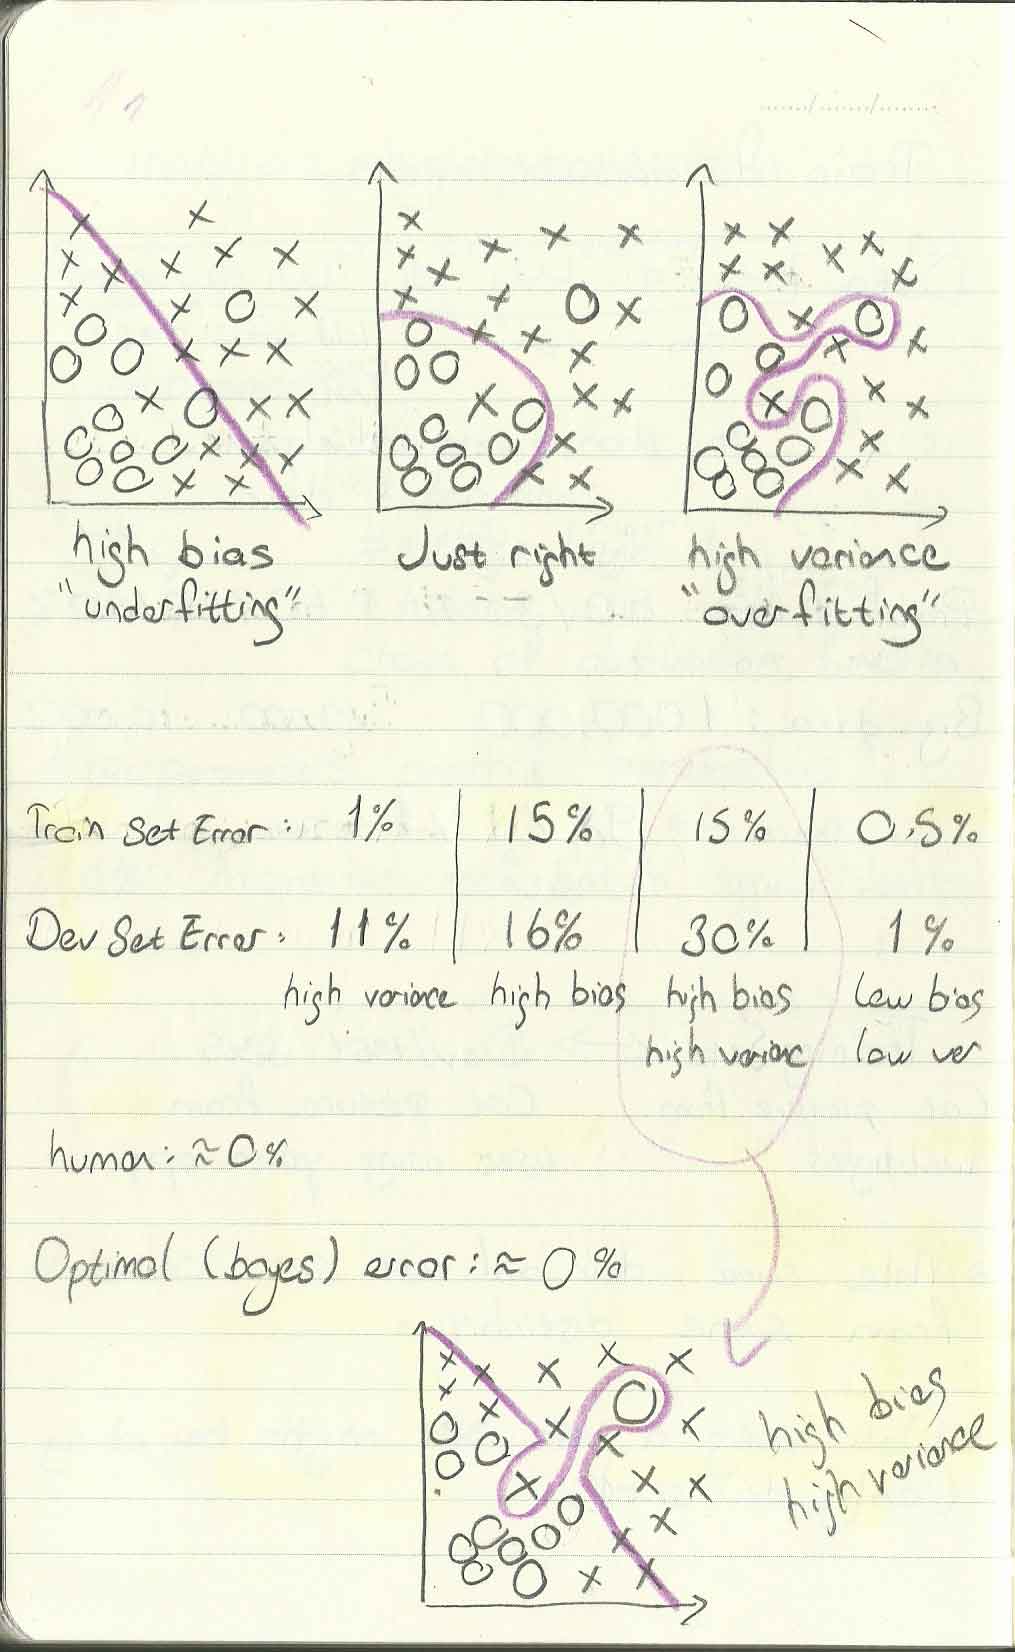 high bias
"underfitting"
Just right
high variance
"overfitting"
Train Set Error: 1% 15% 15% 0.5%
Dev Set Error: 11% 16% 30% 1%
high variance high bias high bias low bias
high varianc low var
human: ≈0%
Optimal (bayes) error: ≈ 0%
high bias
high variance